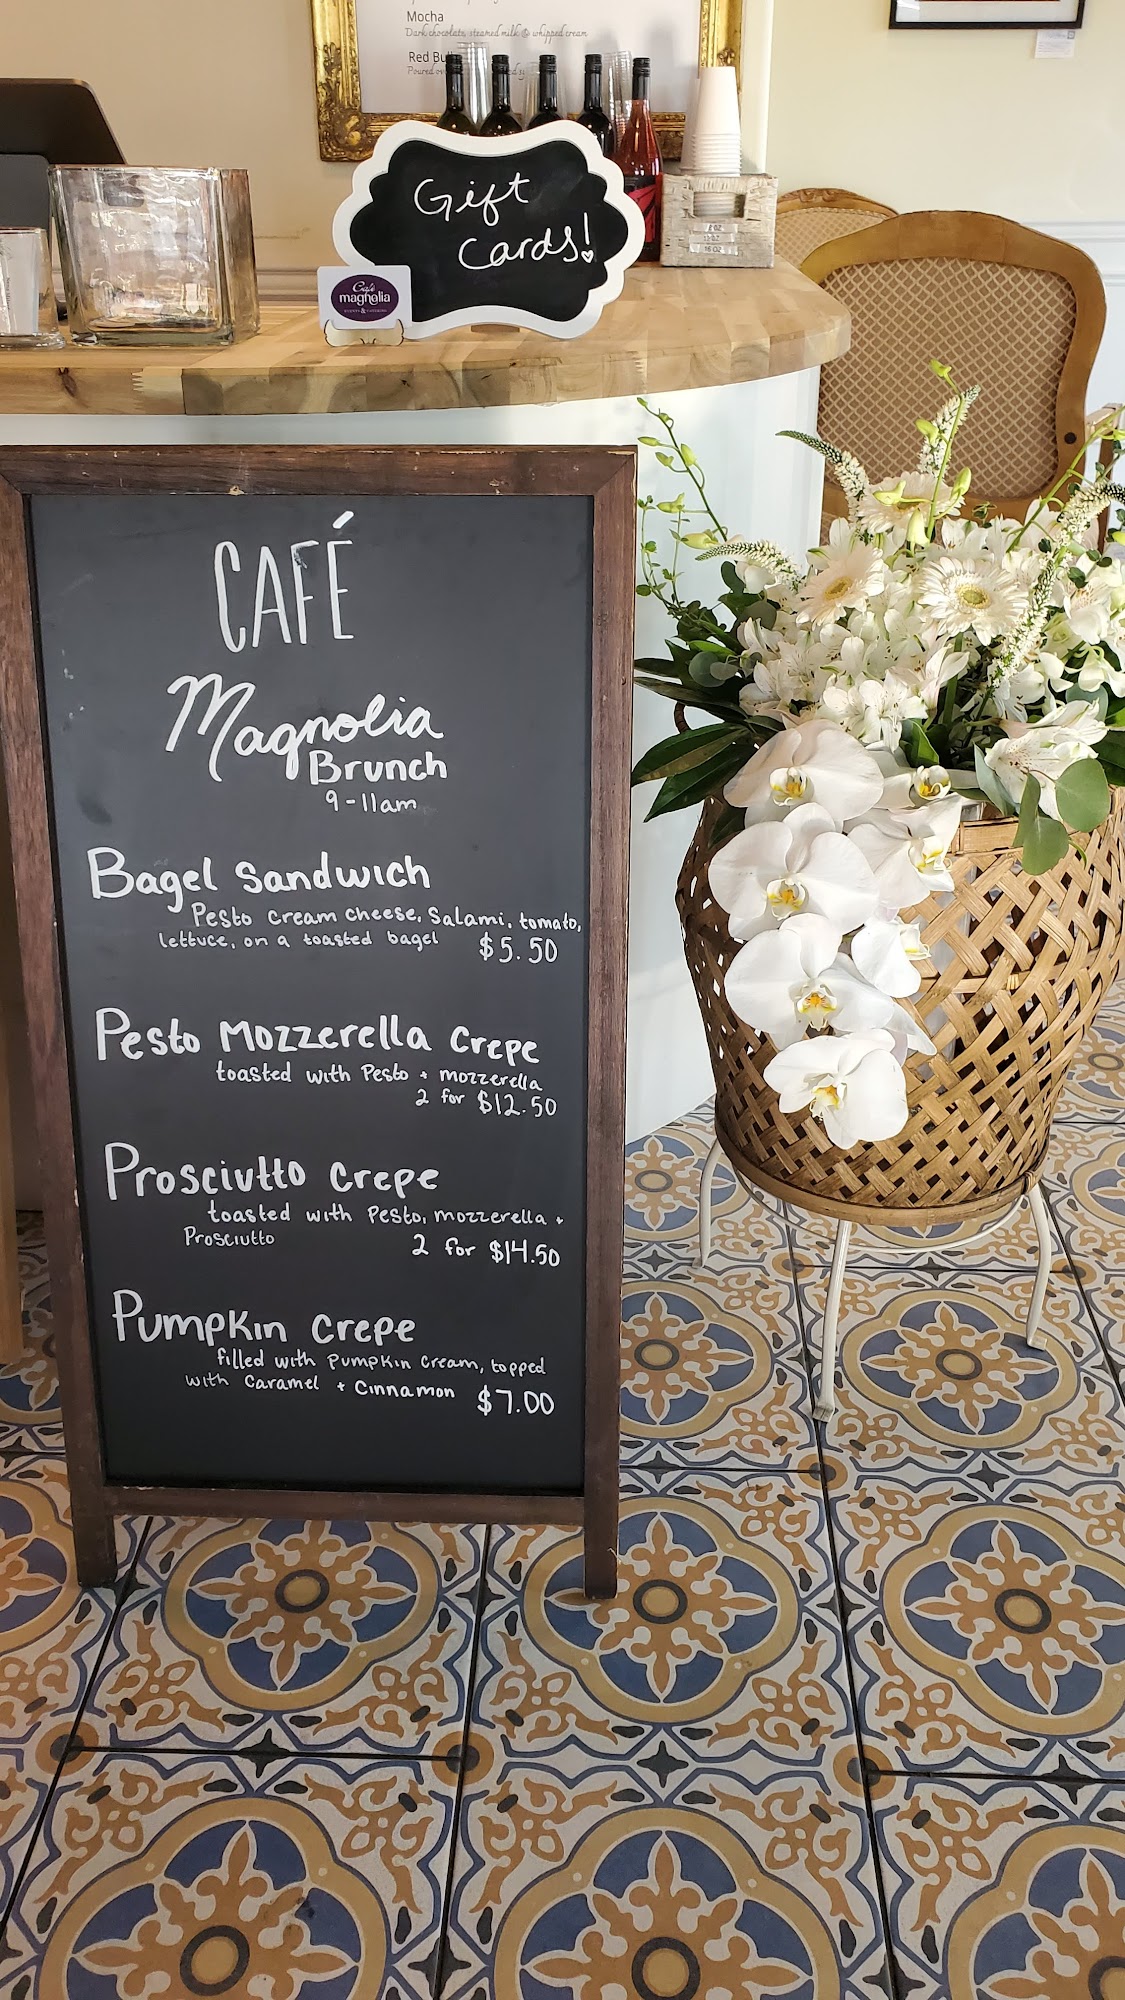 Mocha
Dark chocolate, steamed milk & whipped cream
Red Bull
Poured
Gift
Cards!
Café
magnolia
EVENTS & CATERING
12 OZ
16 OZ
CAFÉ
Magnolia
Brunch
9-11am
Bagel Sandwich
Pesto cream cheese, Salami, tomato,
lettuce, on a toasted bagel $5.50
Pesto Mozzerella Crepe
toasted with Pesto + mozzerella
2 for $12.50
Prosciutto Crepe
toasted with Pesto, mozzerella +
Prosciutto 2 for $14.50
Pumpkin Crepe
filled with Pumpkin Cream, topped
with Caramel + Cinnamon $7.00